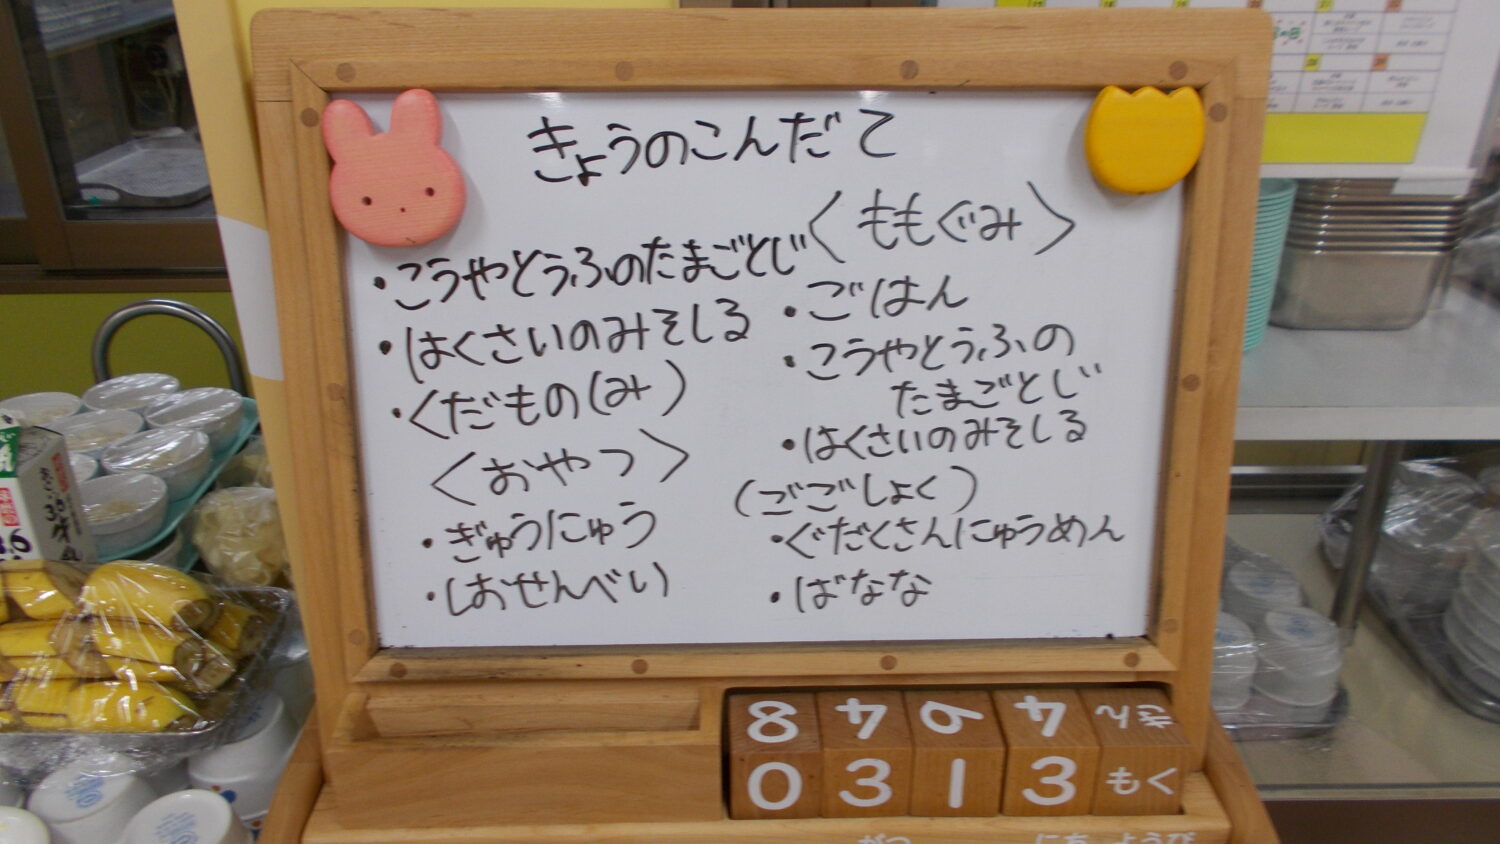 きょうのこんだて
・こうやとうふのたまごとじ
・はくさいのみそしる
・くだもの(み)
〈おやつ〉
・ぎゅうにゅう
・しおせんべい
〈ももぐみ〉
・ごはん
・こうやとうふの
たまごとじ
・はくさいのみそしる
(ごごしょく)
・ぐだくさんにゅうめん
・ばなな
8 4 6 4 きん
0 3 1 3 もく
がつ にち ようび